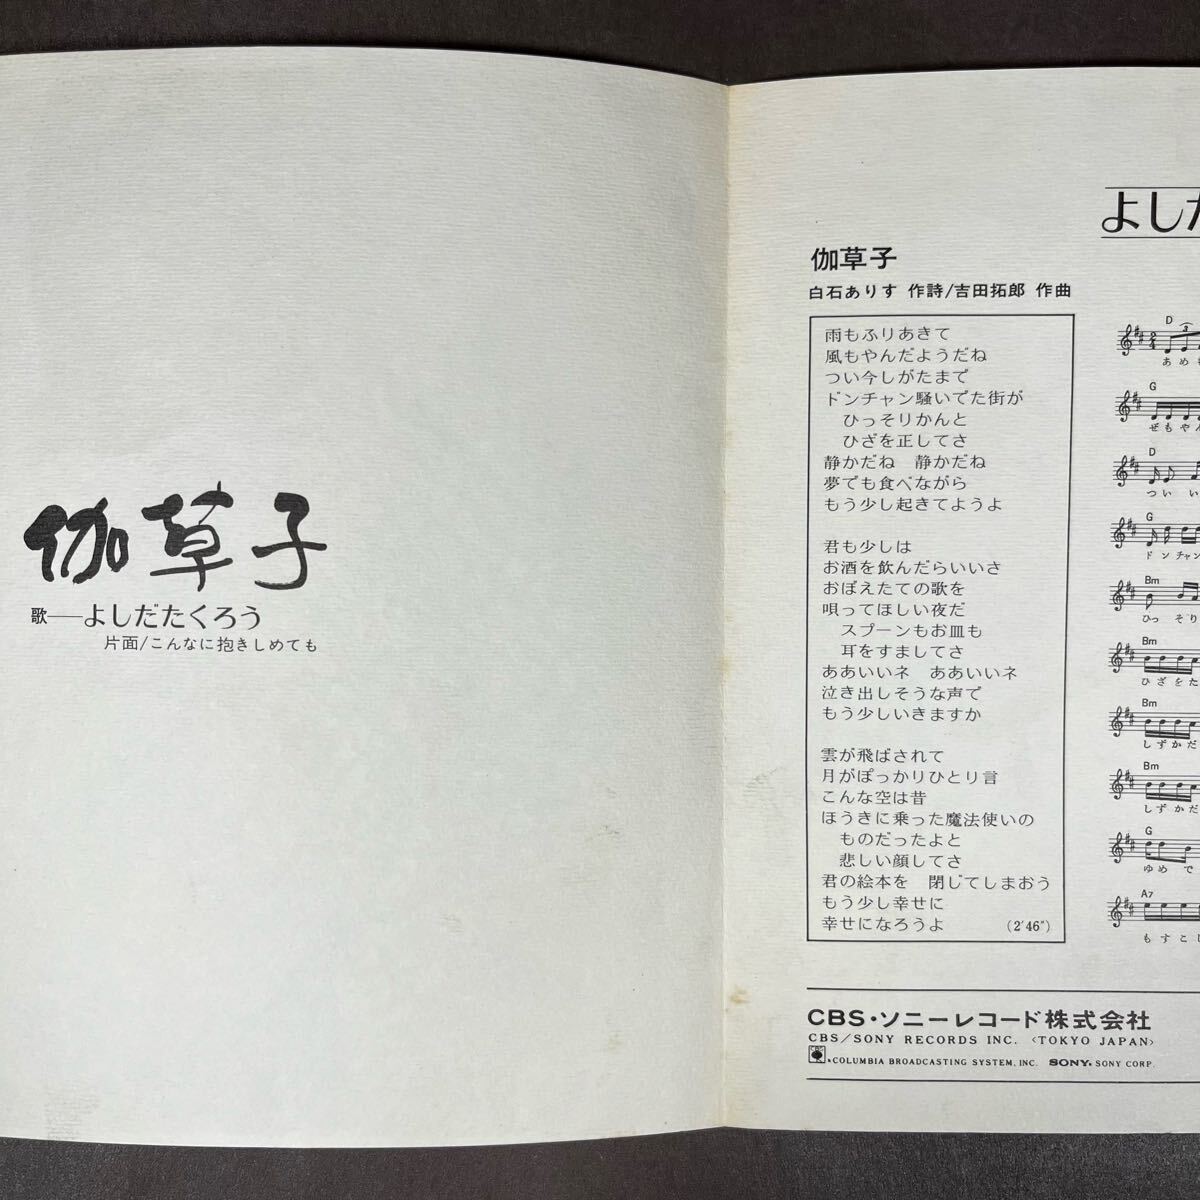 伽草子
歌──よしだたくろう
片面/こんなに抱きしめても
よしだ
伽草子
白石ありす 作詩/吉田拓郎 作曲
雨もふりあきて
風もやんだようだね
つい今しがたまで
ドンチャン騒いでた街が
ひっそりかんと
ひざを正してさ
静かだね 静かだね
夢でも食べながら
もう少し起きてようよ
君も少しは
お酒を飲んだらいいさ
おぼえたての歌を
唄ってほしい夜だ
スプーンもお皿も
耳をすましてさ
ああいいネ ああいいネ
泣き出しそうな声で
もう少しいきますか
雲が飛ばされて
月がぽっかりひとり言
こんな空は昔
ほうきに乗った魔法使いの
ものだったよと
悲しい顔してさ
君の絵本を 閉じてしまおう
もう少し幸せに
幸せになろうよ (2'46")
D
あめ
G
ぜもやん
D
つい い
G
ドンチャン
Bm
ひっ そり
Bm
ひざをた
Bm
しずかだ
Bm
しずかだ
G
ゆめ で
A7
もすこし
CBS・ソニーレコード株式会社
CBS/SONY RECORDS INC. <TOKYO JAPAN>
COLUMBIA BROADCASTING SYSTEM, INC. SONY. SONY CORP.